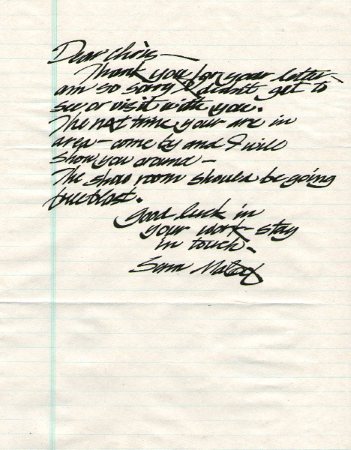 Dear Chris—
Thank you for your letter
am so sorry I didn't get to
see or visit with you.
The next time your are in
area – come by and I will
show you around –
The show room should be going
fullblast.
Good luck in
your work – stay
in touch –
Sam Maloof